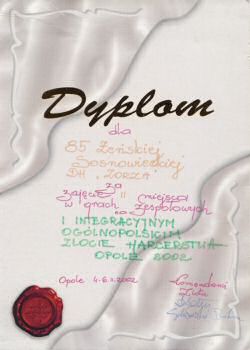 Dyplom
dla
85 Żeńskiej
Sosnowieckiej
DH "ZORZA"
za
zajęcie II miejsca
w grach zespołowych
na
I INTEGRACYJNYM
OGÓLNOPOLSKIM
ZLOCIE HARCERSTWA
OPOLE 2002
Opole 4-6.X.2002
Komendanci
Zlotu